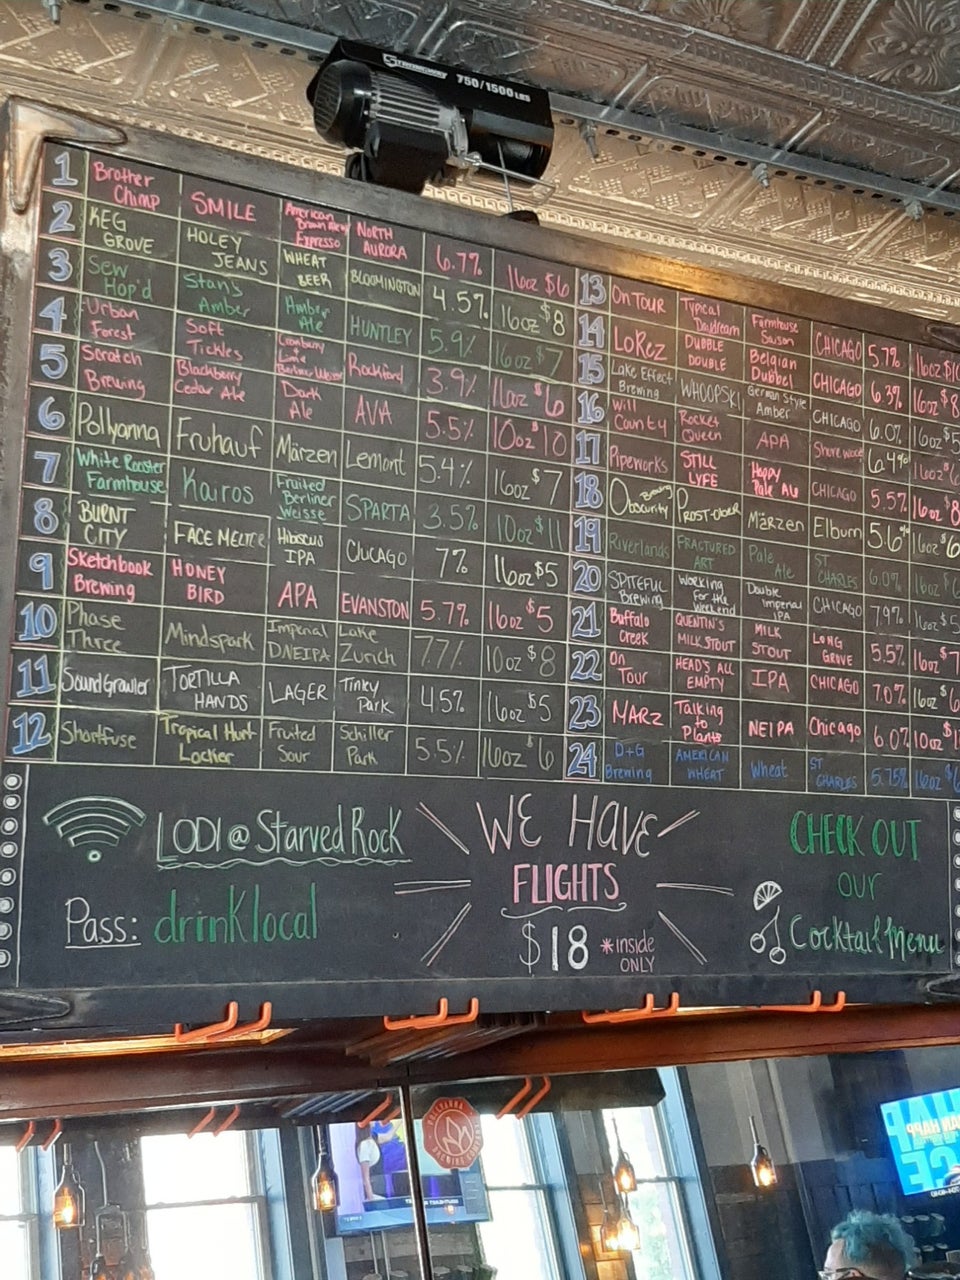 STRONGWAY 750/1500 LBS
1 Brother Chimp SMILE American Brown Ale w/ Espresso NORTH AURORA 6.7% 16oz $6
2 KEG GROVE HOLEY JEANS WHEAT BEER BLOOMINGTON 4.5% 16oz $8
3 Sew Hop'd Stan's Amber Amber Ale HUNTLEY 5.9% 16oz $7
4 Urban Forest Soft Tickles Cranberry Lime Berliner Weisse Rockford 3.9% 16oz $6
5 Scratch Brewing Blackberry Cedar Ale Dark Ale AVA 5.5% 10oz $10
6 Pollyanna Fruhauf Märzen Lemont 5.4% 16oz $7
7 White Rooster Farmhouse Kairos Fruited Berliner Weisse SPARTA 3.5% 10oz $11
8 BURNT CITY FACE MELTER Hibiscus IPA CHICAGO 7% 16oz $5
9 Sketchbook Brewing HONEY BIRD APA EVANSTON 5.7% 16oz $5
10 Phase Three Mindspark Imperial DNEIPA Lake Zurich 7.7% 10oz $8
11 SoundGrowler TORTILLA HANDS LAGER Tinley Park 4.5% 16oz $5
12 Shortfuse Tropical Hurt Locker Fruited Sour Schiller Park 5.5% 16oz $6
13 On TOUR Typical Daydream Farmhouse Saison CHICAGO 5.7% 16oz
14 LoRez DUBBLE DOUBLE Belgian Dubbel CHICAGO 6.3% 16oz $8
15 Lake Effect Brewing WHOOPSKI German Style Amber CHICAGO 6.0% 16oz $5
16 Will County Rocket Queen APA Shorewood 6.4% 16oz $6
17 Pipeworks STILL LYFE Hoppy Pale Ale CHICAGO 5.5% 16oz $8
18 Obscurity Brewing PROST-Ober Märzen Elburn 5.6% 16oz $6
19 Riverlands FRACTURED ART Pale Ale ST CHARLES 6.0% 16oz
20 SPITEFUL Brewing Working for the Weekend Double Imperial IPA CHICAGO 7.9% 16oz $5
21 Buffalo Creek QUENTIN'S MILK STOUT MILK STOUT LONG GROVE 5.5% 16oz $7
22 On Tour HEAD'S ALL EMPTY IPA CHICAGO 7.0% 16oz $6
23 MARZ Talking to Plants NEIPA Chicago 6.0% 10oz
24 D+G Brewing AMERICAN WHEAT Wheat ST CHARLES 5.75% 16oz $6
LODI @ Starved Rock
Pass: drinklocal
WE HAVE
FLIGHTS
$18 *inside
ONLY
CHECK OUT
OUR
Cocktail Menu